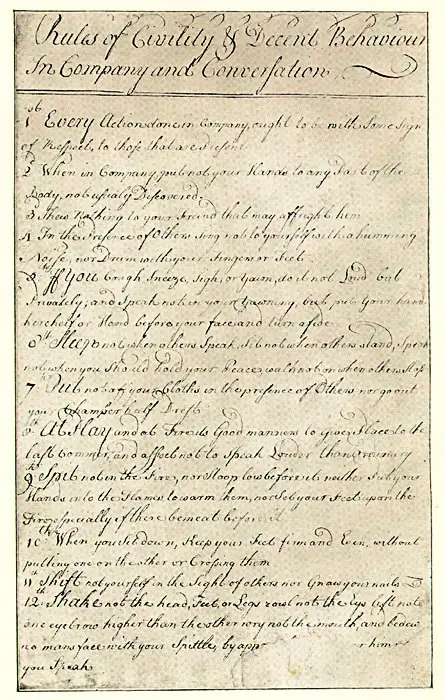 Rules of Civility & Decent Behaviour
In Company and Conversation
1st Every Action done in Company, ought to be with Some Sign
of Respect, to those that are Present
2d When in Company, put not your Hands to any Part of the
Body, not usualy Discovered
3 Shew Nothing to your Friend that may affright him
4 In the Presence of Others sing not to yourself with a humming
Noise, nor Drum with your Fingers or Feet
5th If You Cough, Sneeze, Sigh, or Yawn, do it not Loud but
Privately; and Speak not in your Yawning, but put Your hand-
kercheif or Hand before your face and turn aside
6th Sleep not when others Speak, Sit not when others stand, Speak
not when you Should hold your Peace, walk not on when others Stop
7th Put not off your Cloths in the presence of Others, nor go out
your Chamber half Drest
8th At Play and at Fire its Good manners to Give Place to the
last Commer, and affect not to Speak Louder than ordinary
9th Spit not in the Fire, nor Stoop low before it neither Put your
Hands into the Flames to warm them, nor Set your Feet upon the
Fire especially if there be meat before it
10th When you Sit down, Keep your Feet firm and Even, without
putting one on the other or Crossing them
11th Shift not yourself in the Sight of others nor Gnaw your nails
12th Shake not the head, Feet, or Legs rowl not the Eys lift not
one eyebrow higher than the other wry not the mouth, and bedew
no mans face with your Spittle, by app whom
you Speak